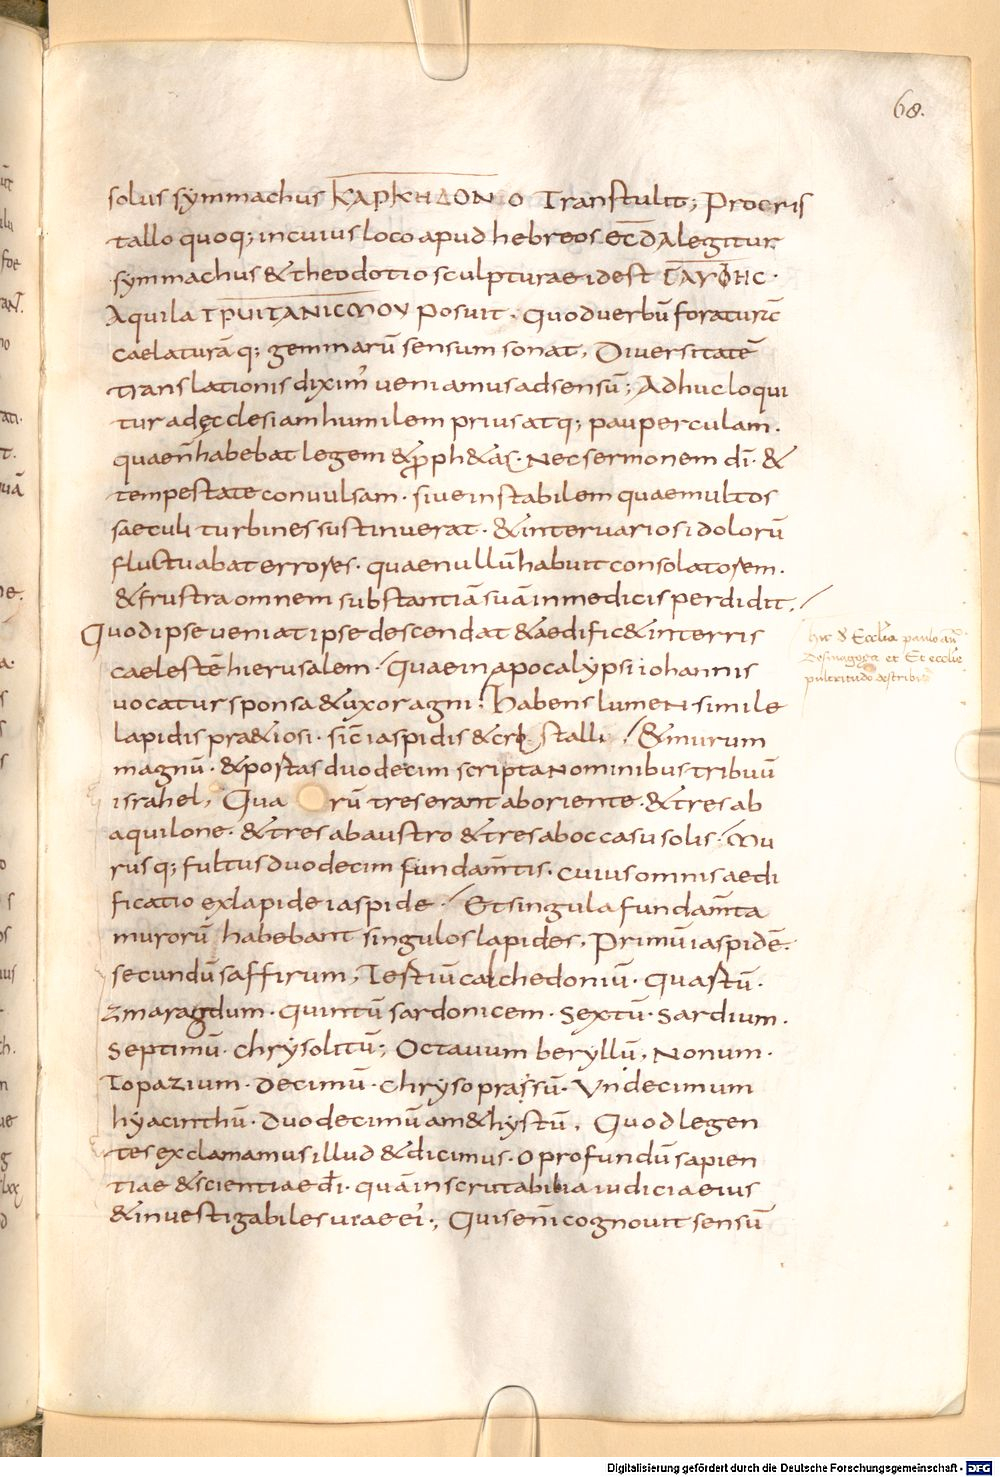 68.
solus symmachus ΚΑΡΚΗΔΟΝΙΟ Transtulit; Procris
tallo quoq; incuius loco apud hebreos ECDA legitur
symmachus & theodotio sculpturae idest ΓΛΥΦΗC·
Aquila ΤΡΥΠΑΝΙCΜΟΥ posuit. Quod verbū foraturā
caelaturā q; gemmarū sensum sonat, Diversitatē
translationis diximꝰ veniamus ad sensū; Adhuc loqui
tur ad ęcclesiam humilem prius atq; pauperculam.
quae n̄ habebat legem & ꝓph&as· Nec sermonem dī· &
tempestate convulsam· sive instabilem quae multos
saeculi turbines sustinuerat· & inter varios idolorū
fluctuabat errores· quae nullū habuit consolatorem.
& frustra omnem substantiā suā in medicis perdidit.
Quod ipse veniat ipse descendat & aedific& in terris
caelestē hierusalem· Quae in apocalypsi iohannis
vocatur sponsa & uxor agni. Habens lumen simile
lapidis pr&iosi· sic iaspidis & cristalli & murum
magnū· & postas duodecim scripta nominibus tribuū
israhel, Quarū tres erant ab oriente· & tres ab
aquilone· & tres ab austro & tres ab occasu solis· Mu
rusq; fultus duodecim fundam̄tis· cuius omnis aedi
ficatio ex lapide iaspide· Et singula fundam̄ta
murorū habebant singulos lapides, Primū iaspidē·
secundū saffirum, Testiū calchedoniū· Quastū·
Zmaragdum· Quintū sardonicem· Sextū· Sardium.
Septimū· Chrysolitū; Octavum beryllū, Nonum·
Topazium· Decimū· Chrysoprassū· Undecimum
hyacinthū· Duodecimū am&hystū, Quod legen
tes exclamamus illud & dicimus· O profundū sapien
tiae & scientiae dī· quā inscrutabilia iudicia eius
& investigabiles viae eiꝰ·, Quis eni cognovit sensū
Hic Ecclīa paulo an
Desinagoga et Et ecclie
pulcritudo describi
Digitalisierung gefördert durch die Deutsche Forschungsgemeinschaft - DFG